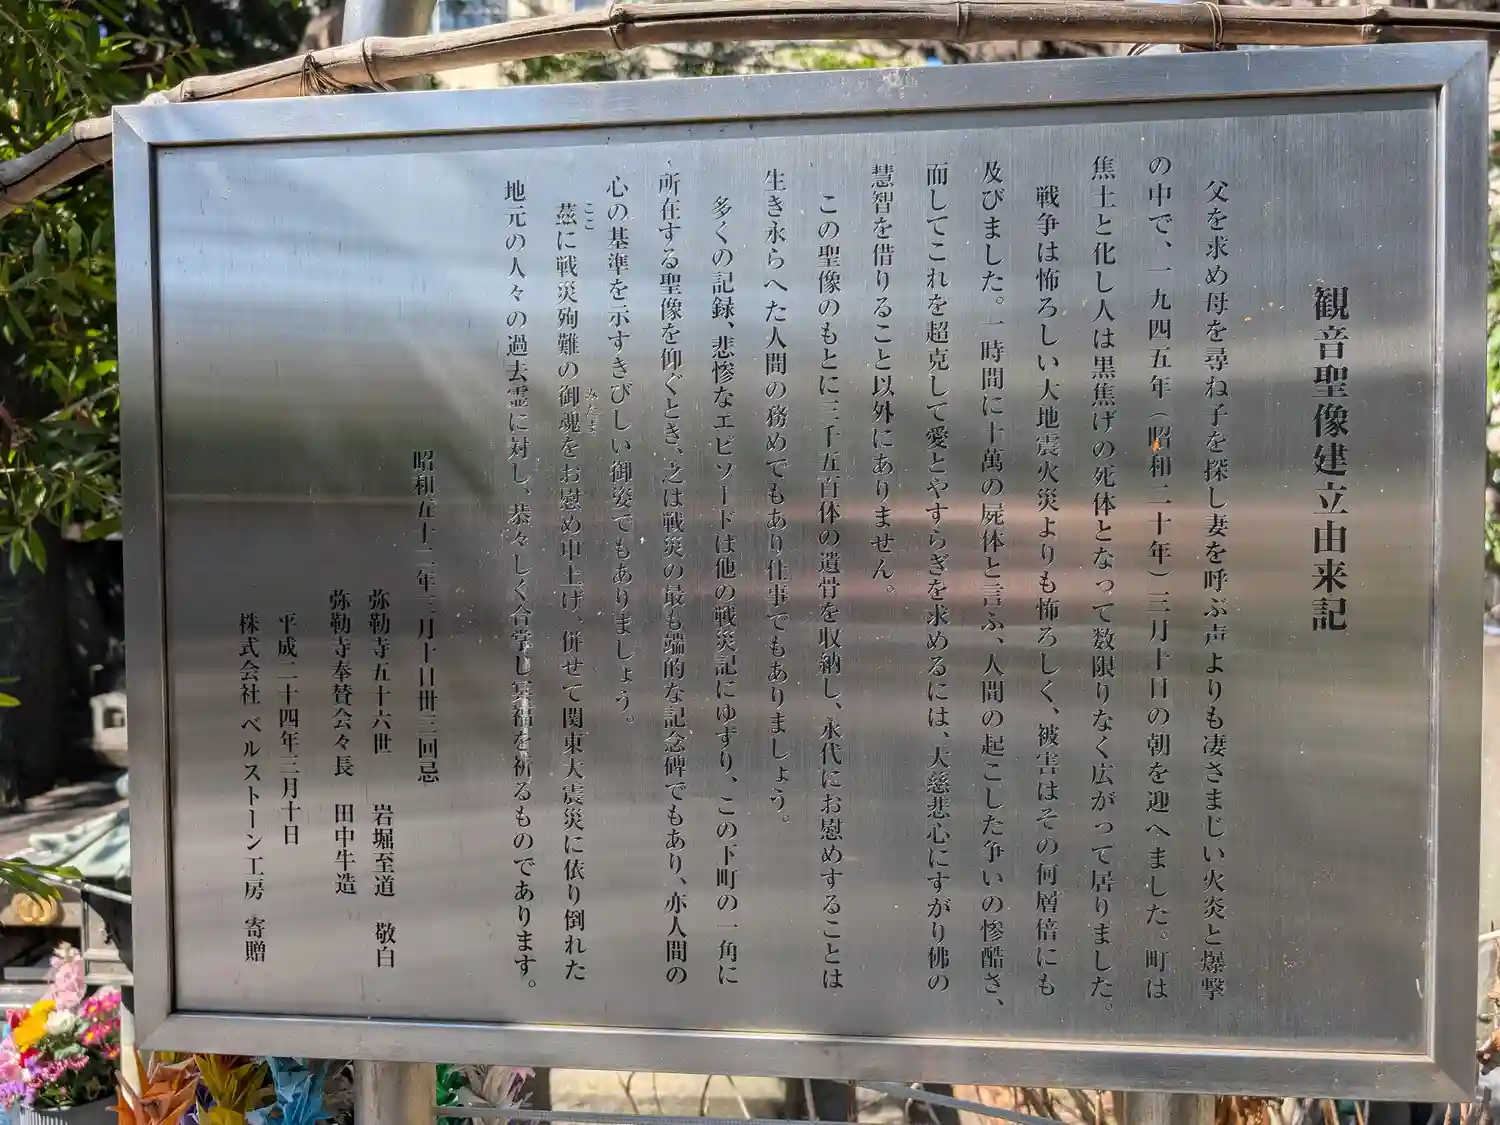 観音聖像建立由来記
父を求め母を尋ね子を探し妻を呼ぶ声よりも凄さまじい火炎と爆撃
の中で、一九四五年（昭和二十年）三月十日の朝を迎へました。町は
焦土と化し人は黒焦げの死体となって数限りなく広がって居りました。
戦争は怖ろしい大地震火災よりも怖ろしく、被害はその何層倍にも
及びました。一時間に十萬の屍体と言ふ、人間の起こした争いの惨酷さ、
而してこれを超克して愛とやすらぎを求めるには、大慈悲心にすがり佛の
慧智を借りること以外にありません。
この聖像のもとに三千五百体の遺骨を収納し、永代にお慰めすることは
生き永らへた人間の務めでもあり仕事でもありましょう。
多くの記録、悲惨なエピソードは他の戦災記にゆずり、この下町の一角に
所在する聖像を仰ぐとき、之は戦災の最も端的な記念碑でもあり、亦人間の
心の基準を示すきびしい御姿でもありましょう。
茲に戦災殉難の御魂をお慰め申上げ、併せて関東大震災に依り倒れた
ここ
みたま
地元の人々の過去霊に対し、恭々しく合掌し冥福を祈るものであります。
昭和五十二年三月十日卅三回忌
弥勒寺五十六世　岩堀至道　敬白
弥勒寺奉賛会々長　田中牛造
平成二十四年三月十日
株式会社 ベルストーン工房 寄贈